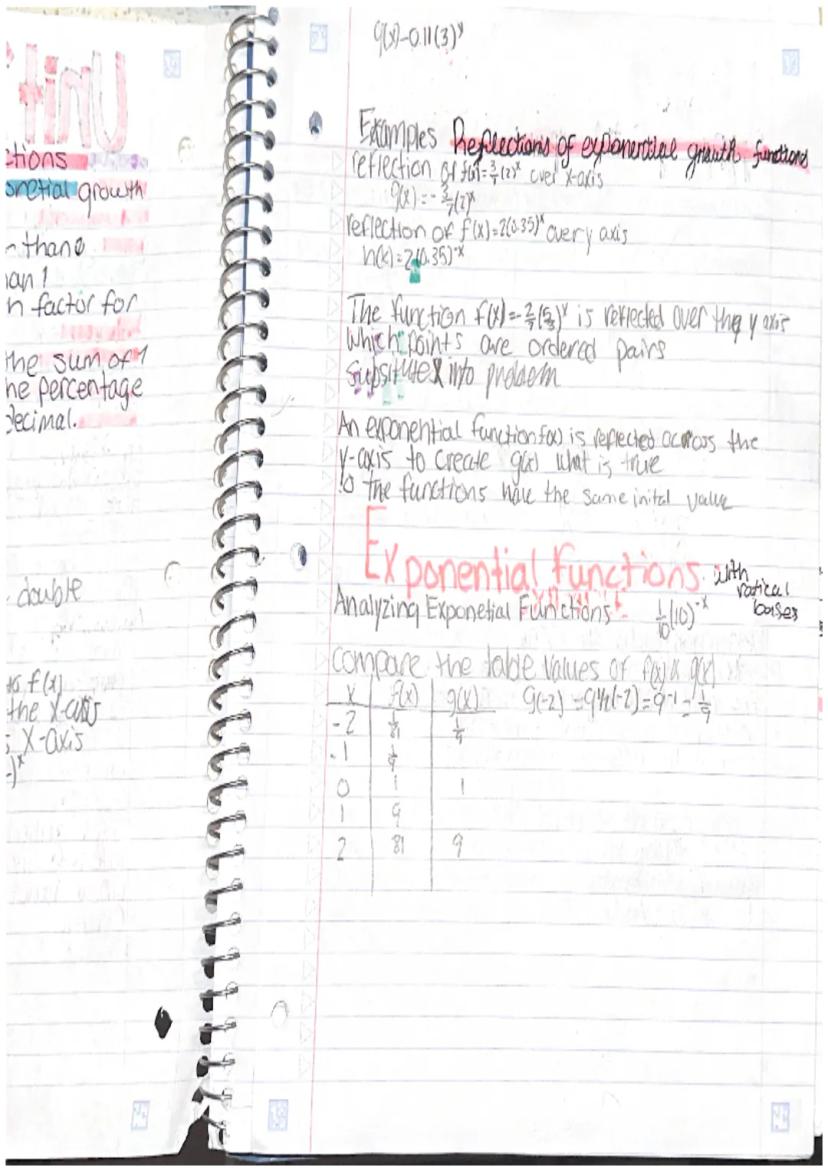 tinU
ctions
onetial growth
than 0
an 1
h factor for
the sum of 1
he percentage
decimal.
double
to f(x)
the x-axis
x-axis
g(x)-0.11(3)ˣ
Examples Reflections of exponential growth functions
reflection of f(x)=3/7(2)ˣ over x-axis
g(x)=-3/7(2)ˣ
reflection of f(x)=2(0.35)ˣ over y axis
h(x)=2(0.35)⁻ˣ
The function f(x)= (5/3)ˣ is reflected over the y axis
which points are ordered pairs
Substitute x into problem
An exponential function f(x) is reflected across the
y-axis to create g(x) what is true
The functions have the same inital value
Exponential functions with
radical
bases
Analyzing Exponetial Functions 1/10(10)⁻ˣ
Compare the table values of f(x) & g(x)
x f(x) g(x) g(-2)=9½(-2)=9⁻¹=1/9
-2 1/81 1/9
-1 1/9
0 1 1
1 9
2 81 9